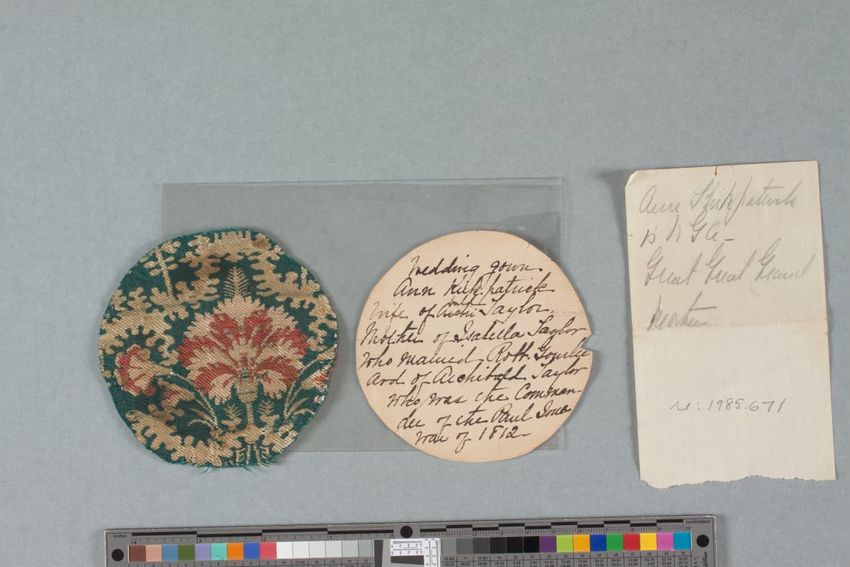 Wedding gown
Ann Kirkpatrick
Wife of Archibald Taylor
Mother of Isabella Taylor
Who married Robt.
And of Archibald Taylor
Who was the Comman-
der of the Paul Jones
War of 1812-
Ann Kirkpatrick
is
Great Great Grand
Mother
re: 1985.671